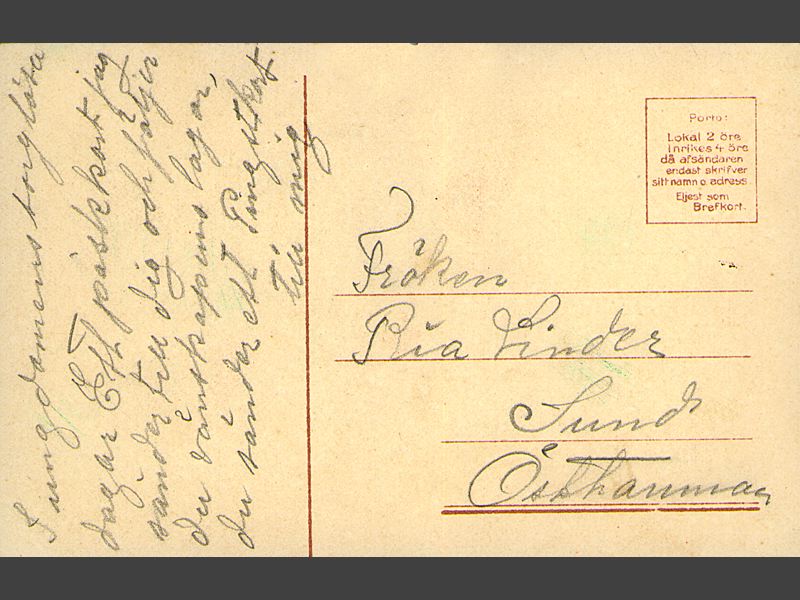 I ungdomens sorglösa
dagar Ett påskkort jag
sänder till dig och följer
du vänskapens lagar,
du sänder ett Pingstkort
till mig
Porto:
Lokal 2 öre
Inrikes 4 öre
då afsändaren
endast skrifver
sitt namn o. adress.
Eljest som
Brefkort.
Fröken
Ria Linder
Sund
Östhammar